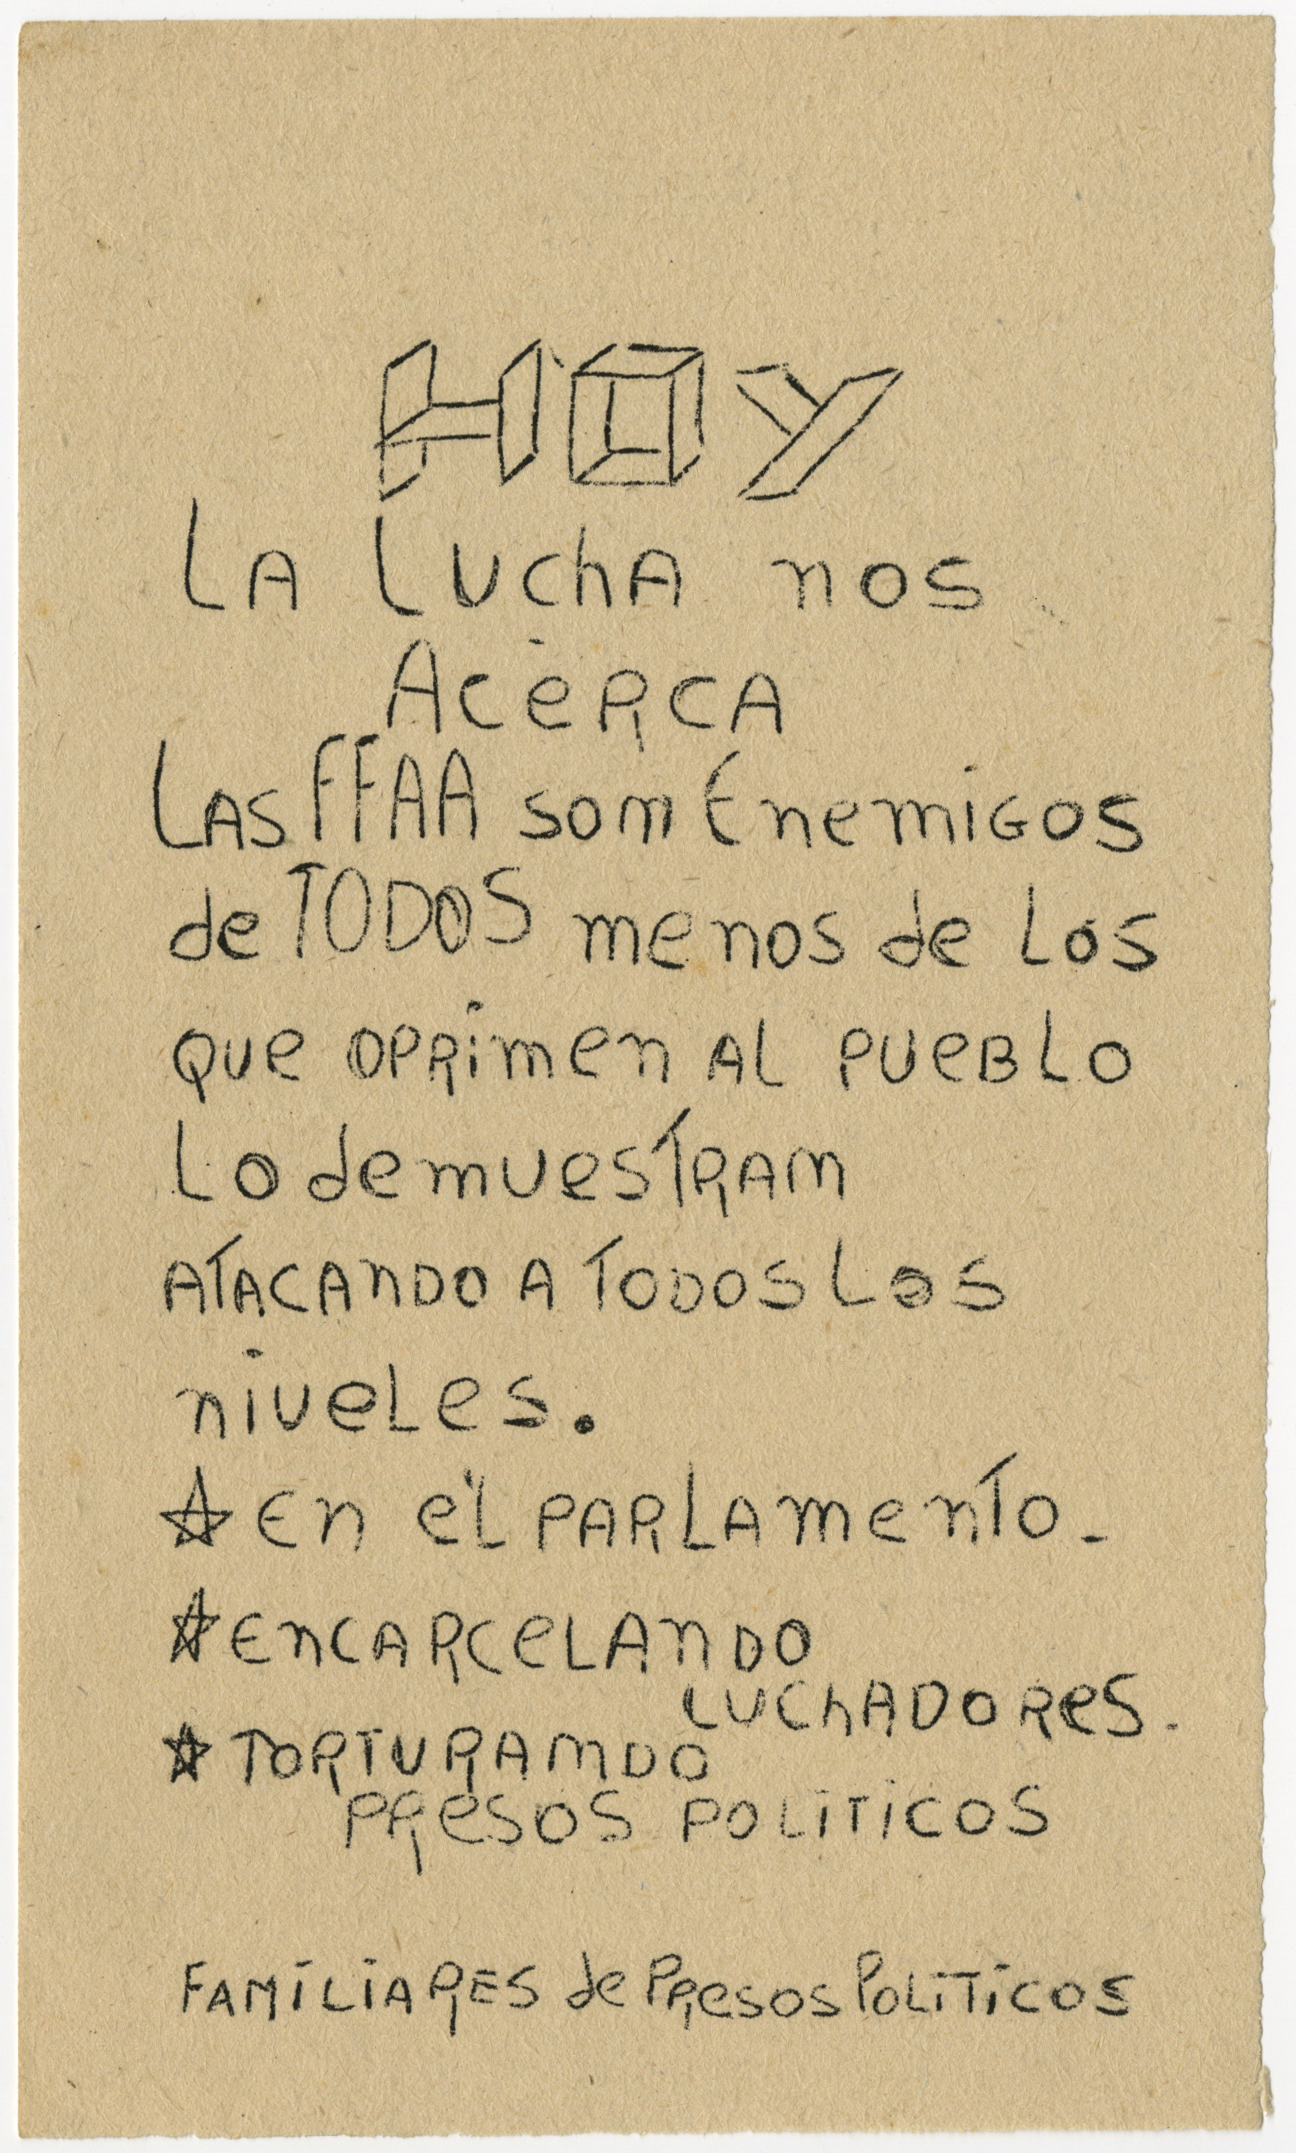 HOY
LA LUChA nos
AceRCA
LAS FFAA som Enemigos
de TODOS menos de Los
que oprimen AL PUeBLO
Lo demuesTRAm
ATACAnDO A TODOS Los
niveLes.
☆ En eL PARLAmenTo-
☆ EnCARCeLAnDO
LUChADORes.
☆ TORTURAmDO
PResos POLiTiCOS
FAMiLiARES de PResos PoLiTiCOS